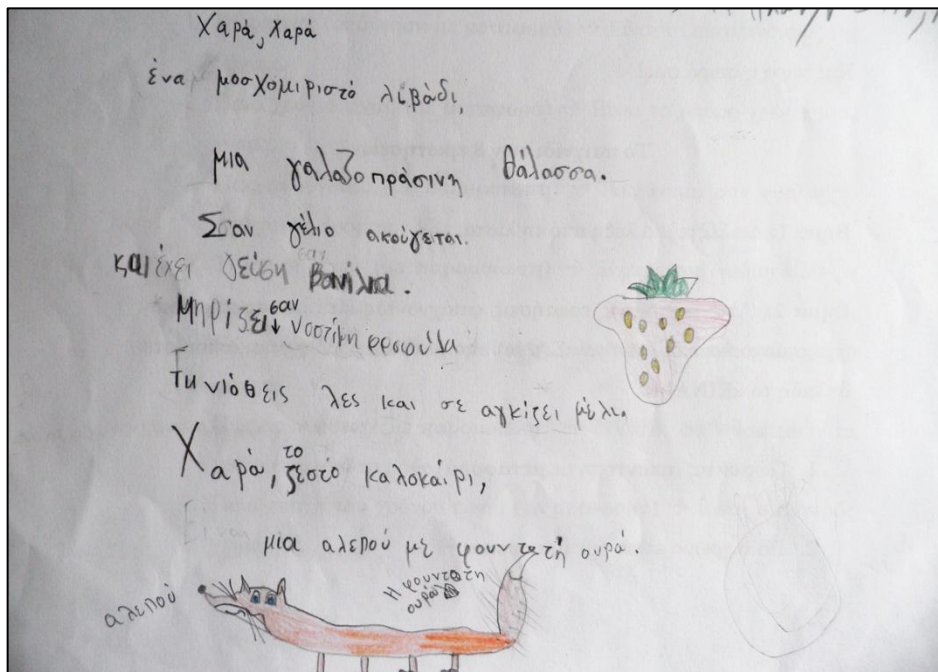 Χαρά, Χαρά
ένα μοσχομιριστό λιβάδι,
μια γαλαζοπράσινη θάλασσα.
Σαν γέλιο ακούγεται.
και έχει γεύση σαν βανίλια.
Μηρίζει σαν νοστιμη φραουλα
Τη νιόθεις λες και σε αγκίζει μέλι.
Χαρά, το ζεστό καλοκαίρι,
μια αλεπού με φουντωτή ουρά.
Η φουντωτη ουρά
αλεπού